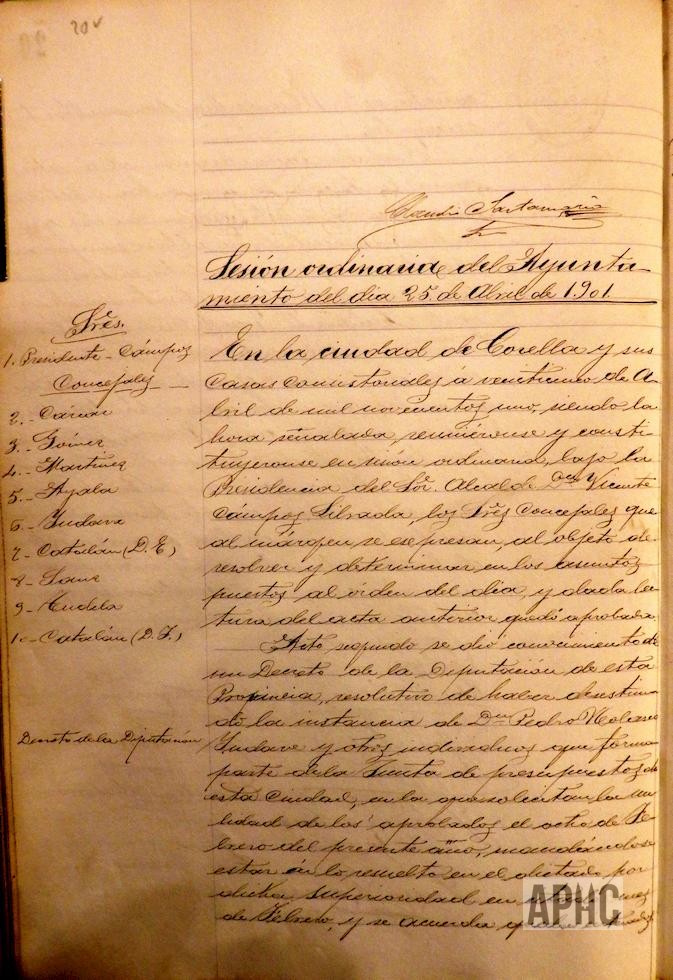 20v
Claudio Santamaria
Sesión ordinaria del Ayunta-
miento del dia 25 de Abril de 1901.
Sres.
1. Presidente - Cámpos
Concejales
2.-
3.- Gómez
4.- Martinez
5.- Ayala
6.- Yudave
7- Catalán (D. E)
8- Sanz
9- Tudela
10- Catalán (D. F.)
Decreto de la Diputación
En la ciudad de Corella y sus
Casas Consistoriales á veinticinco de A-
bril de mil novecientos uno, siendo la
hora señalada, reuniéronse y consti-
tuyeronse en sesión ordinaria, bajo la
Presidencia del Sor. Alcalde Don Vicente
Cámpos Librada, los Sres Concejales que
al márgen se espresan, al objeto de
resolver y determinar en los asuntos
puestos al órden del dia, y dada lec-
tura del acta anterior quedó aprobada.
Acto segundo se dió conocimiento de
un Decreto de la Diputación de esta
Provincia, resolutivo de haber desestima-
do la instancia de Don Pedro Nolasco
Yudave y otros individuos que forman
parte de la Junta de presupuestos de
esta Ciudad, en la que solicitan la nu-
lidad de los aprobados el ocho de Fe-
brero del presente año, mandándose
estar en lo resuelto en el dictado por
dicha superioridad en mes
de Febrero, y se acuerda
APHC